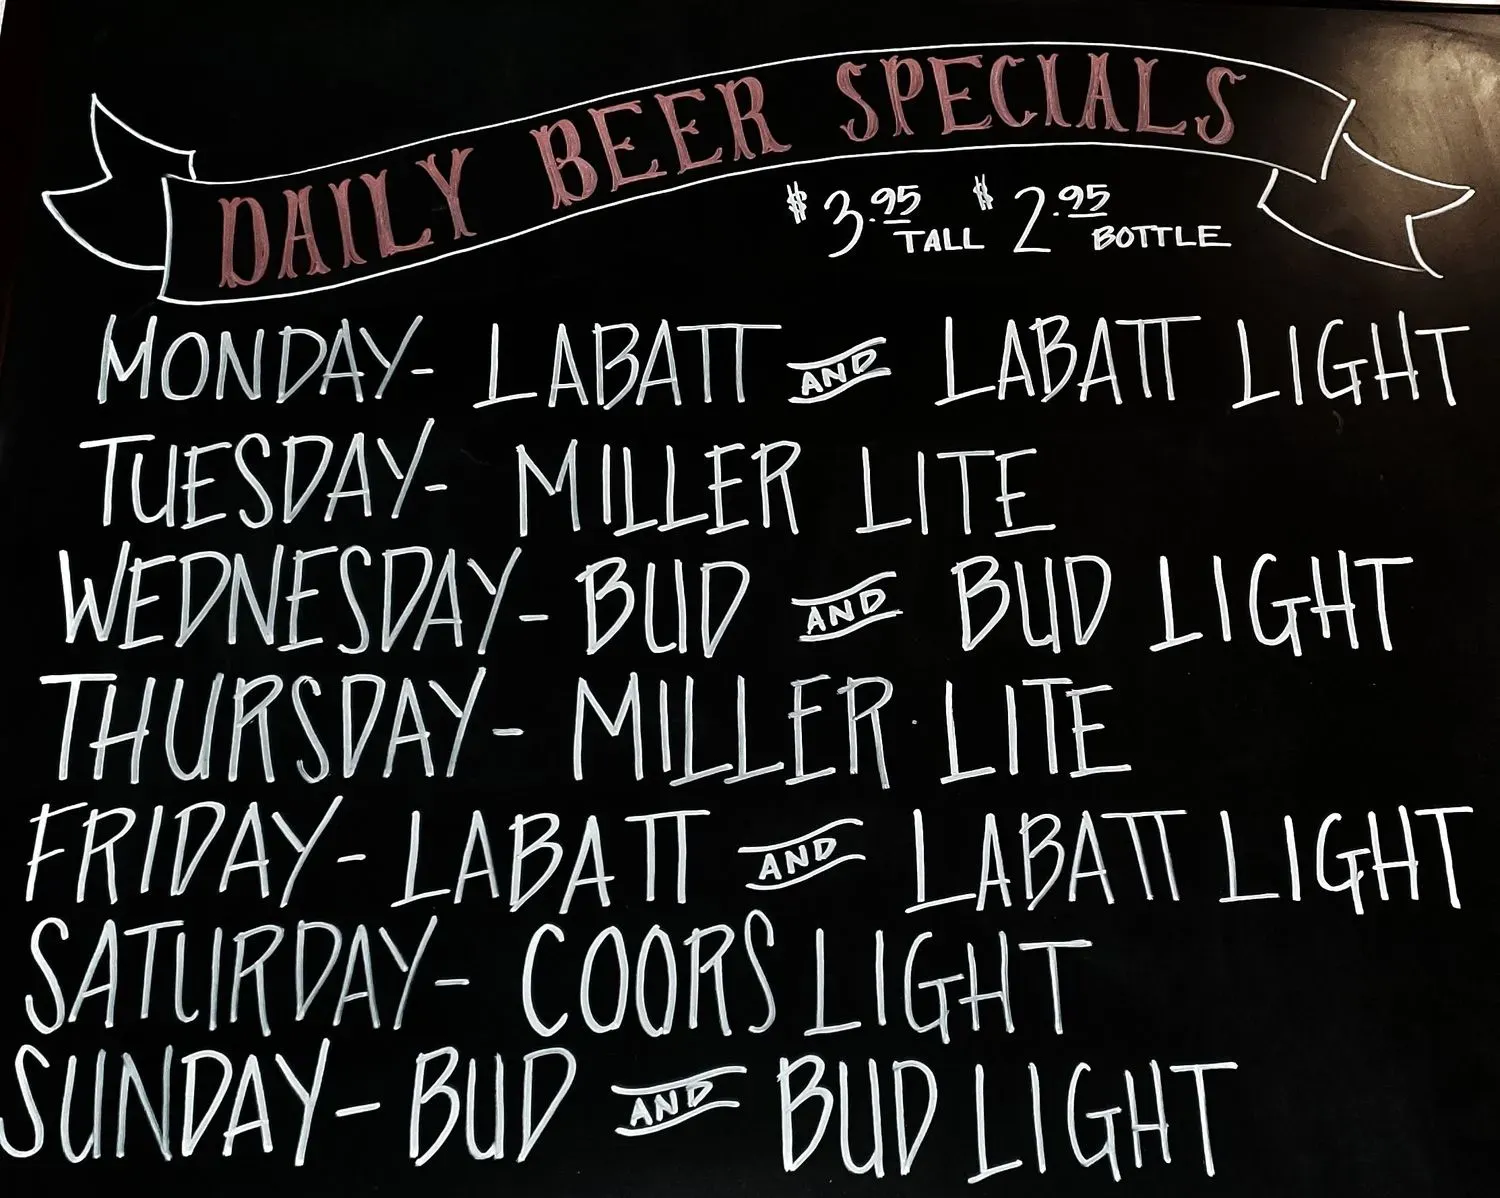 DAILY BEER SPECIALS
$3.95 TALL $2.95 BOTTLE
MONDAY- LABATT AND LABATT LIGHT
TUESDAY- MILLER LITE
WEDNESDAY- BUD AND BUD LIGHT
THURSDAY- MILLER LITE
FRIDAY- LABATT AND LABATT LIGHT
SATURDAY- COORS LIGHT
SUNDAY- BUD AND BUD LIGHT